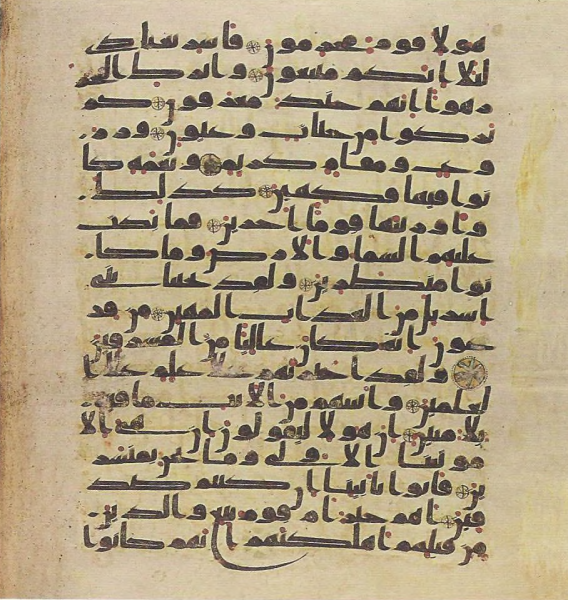 هولا قوم مجرمون فاسر بعبادي
ليلا انكم متبعون واترك البحر
رهوا انهم جند مغرقون كم
تركوا من جنات وعيون وزر
وع ومقام كريم ونعمه كا
نوا فيها فكهين كذلك
واورثنها قوما اخرين فما بكت
عليهم السما والارض وما كا
نوا منظرين ولقد نجينا بني
اسريل من العذاب المهين من فر
عون انه كان عاليا من المسرفين
ولقد اخترنهم على علم على ا
لعلمين واتينهم من الايت ما فيه
بلوا مبين ان هولا ليقولون ان هي الا
موتتنا الاولى وما نحن بمنشر
ين فاتوا بابائنا ان كنتم صد
قين اهم خير ام قوم تبع والذين
من قبلهم اهلكنهم انهم كانوا